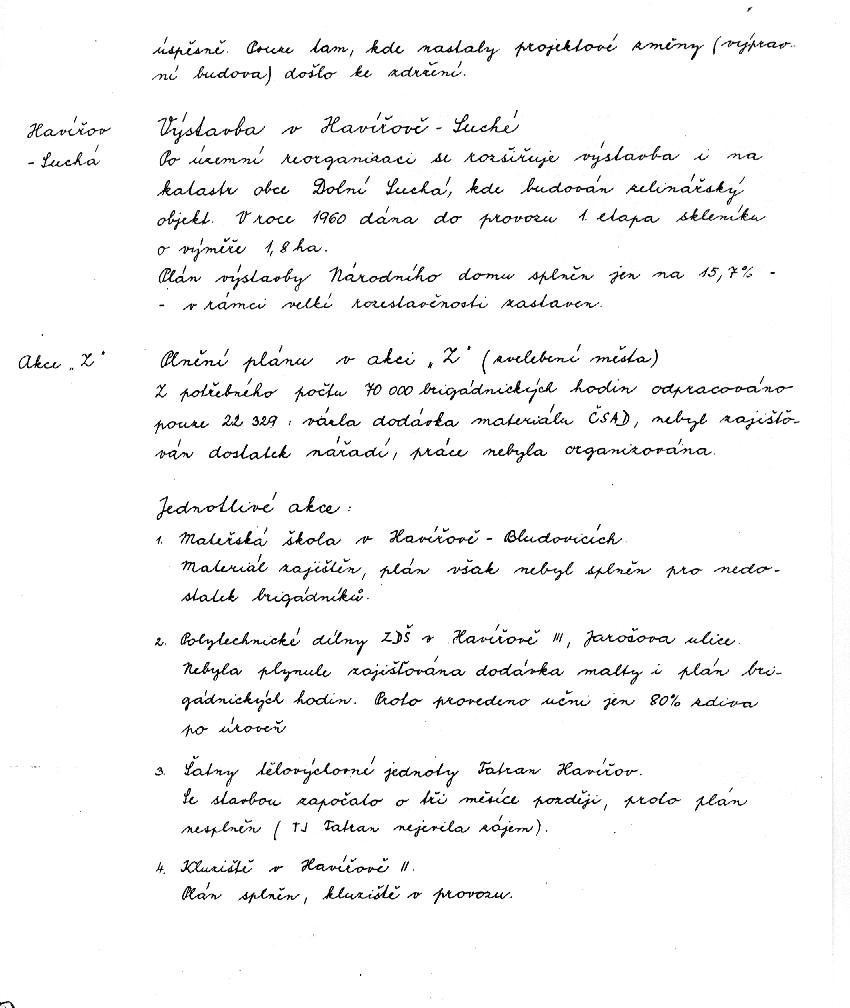 úspěsně. Pouze tam, kde nastaly projektové změny (výprav-
ní budova) došlo ke zdržení.
Havířov
- Suchá
Výstavba v Havířově - Suché
Po územní reorganizaci se rozšiřuje výstavba i na
katastr obce Dolní Suchá, kde budován zelinářský
objekt. V roce 1960 dána do provozu 1. etapa skleníku
o výměře 1,8 ha.
Plán výstavby Národního domu splněn jen na 15,7% -
- v rámci velké rozestavěnosti zastaven.
Akce „Z"
Plnění plánu v akci „Z" (zvelebení města)
Z potřebného počtu 70 000 brigádnických hodin odpracováno
pouze 22 329 : vázla dodávka materiálu ČSAD, nebyl zajišťo-
ván dostatek nářadí, práce nebyla organizována.
Jednotlivé akce :
1. Mateřská škola v Havířově - Bludovicích.
Materiál zajištěn, plán však nebyl splněn pro nedo-
statek brigádníků.
2. Polytechnické dílny ZDŠ v Havířově III, Jarošova ulice.
Nebyla plynule zajišťována dodávka malty i plán bri-
gádnických hodin. Proto provedeno učni jen 80% zdiva
po úroveň
3. Šatny tělovýchovné jednoty Tatran Havířov.
Se stavbou započato o tři měsíce později, proto plán
nesplněn (TJ Tatran nejevila zájem).
4. Kluziště v Havířově II.
Plán splněn, kluziště v provozu.